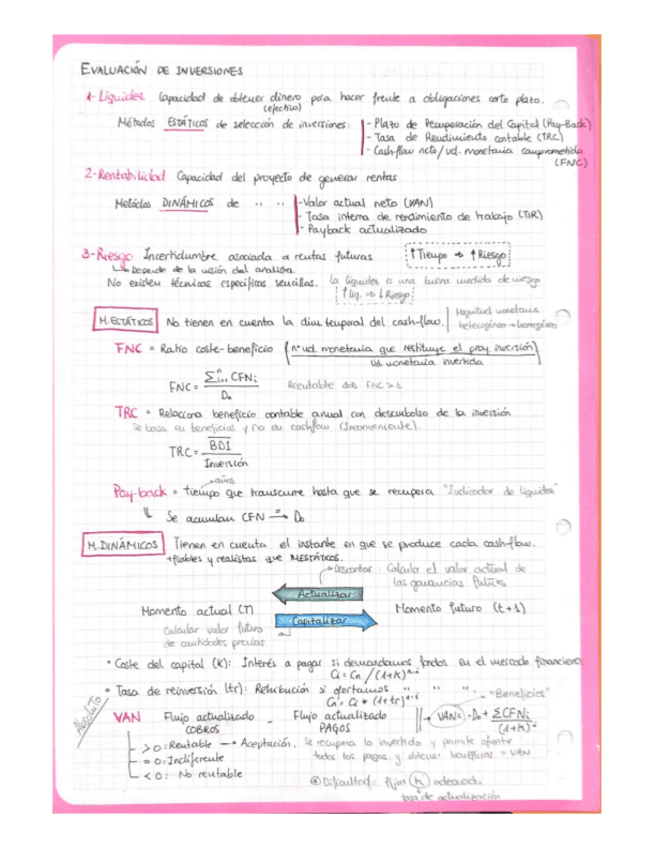 EVALUACIÓN DE INVERSIONES
1- Liquidez Capacidad de obtener dinero para hacer frente a obligaciones corto plazo.
(efectivo)
Métodos ESTÁTICOS de selección de inversiones: - Plazo de Recuperación del Capital (Pay-Back)
- Tasa de Rendimiento contable (TRC)
- Cash-flow neto/ud. monetaria comprometida
(FNC)
2- Rentabilidad Capacidad del proyecto de generar rentas
Métodos DINÁMICOS de " " - Valor actual neto (VAN)
- Tasa interna de rendimiento de trabajo (TIR)
- Payback actualizado
3- Riesgo Incertidumbre asociada a rentas futuras ↑Tiempo ⇒ ↑Riesgo
↳ Depende de la visión del analista.
No existen técnicas específicas sencillas. La liquidez es una buena medida de riesgo
↑liq. ⇒ ↓Riesgo
M. ESTÁTICOS No tienen en cuenta la dim temporal del cash-flow. Magnitud monetaria
heterogéneo → homogéneo
FNC = Ratio coste-beneficio (nº ud. monetaria que restituye el proy. inversión)
Ud. monetaria invertida
FNC = Σⁿᵢ₌₁ CFNi / D₀ Rentable FNC > 1
TRC = Relaciona beneficio contable anual con desembolso de la inversión
Se basa en beneficios y no en cashflow (Inconveniente).
TRC = BDI / Inversión
→ años
Pay-back = tiempo que transcurre hasta que se recupera "Indicador de liquidez"
↳ Se acumulan CFN → D₀
M. DINÁMICOS Tienen en cuenta el instante en que se produce cada cash-flow.
+ fiables y realistas que M.ESTÁTICOS.
→ Descontar: Calcular el valor actual de
las ganancias futuras
Actualizar
Momento actual (T) Momento futuro (t+1)
Capitalizar
Calcular valor futuro
de cantidades previas.
• Coste del capital (K): Interés a pagar si demandamos fondos en el mercado financiero
Ci = Cn / (1+K)ⁿ⁻ⁱ
• Tasa de reinversión (tr): Retribución si ofertamos " " " - "Beneficios"
Cn = Ci * (1+tr)ⁿ⁻ⁱ
Absoluto
VAN Flujo actualizado COBROS - Flujo actualizado PAGOS → VAN = -D₀ + ΣCFNi / (1+K)ⁱ
> 0: Rentable → Aceptación. Se recupera lo invertido y permite afrontar
= 0: Indiferente todos los pagos y obtener beneficios = VAN
< 0: No rentable
Dificultad: fijar K adecuada.
tasa de actualización